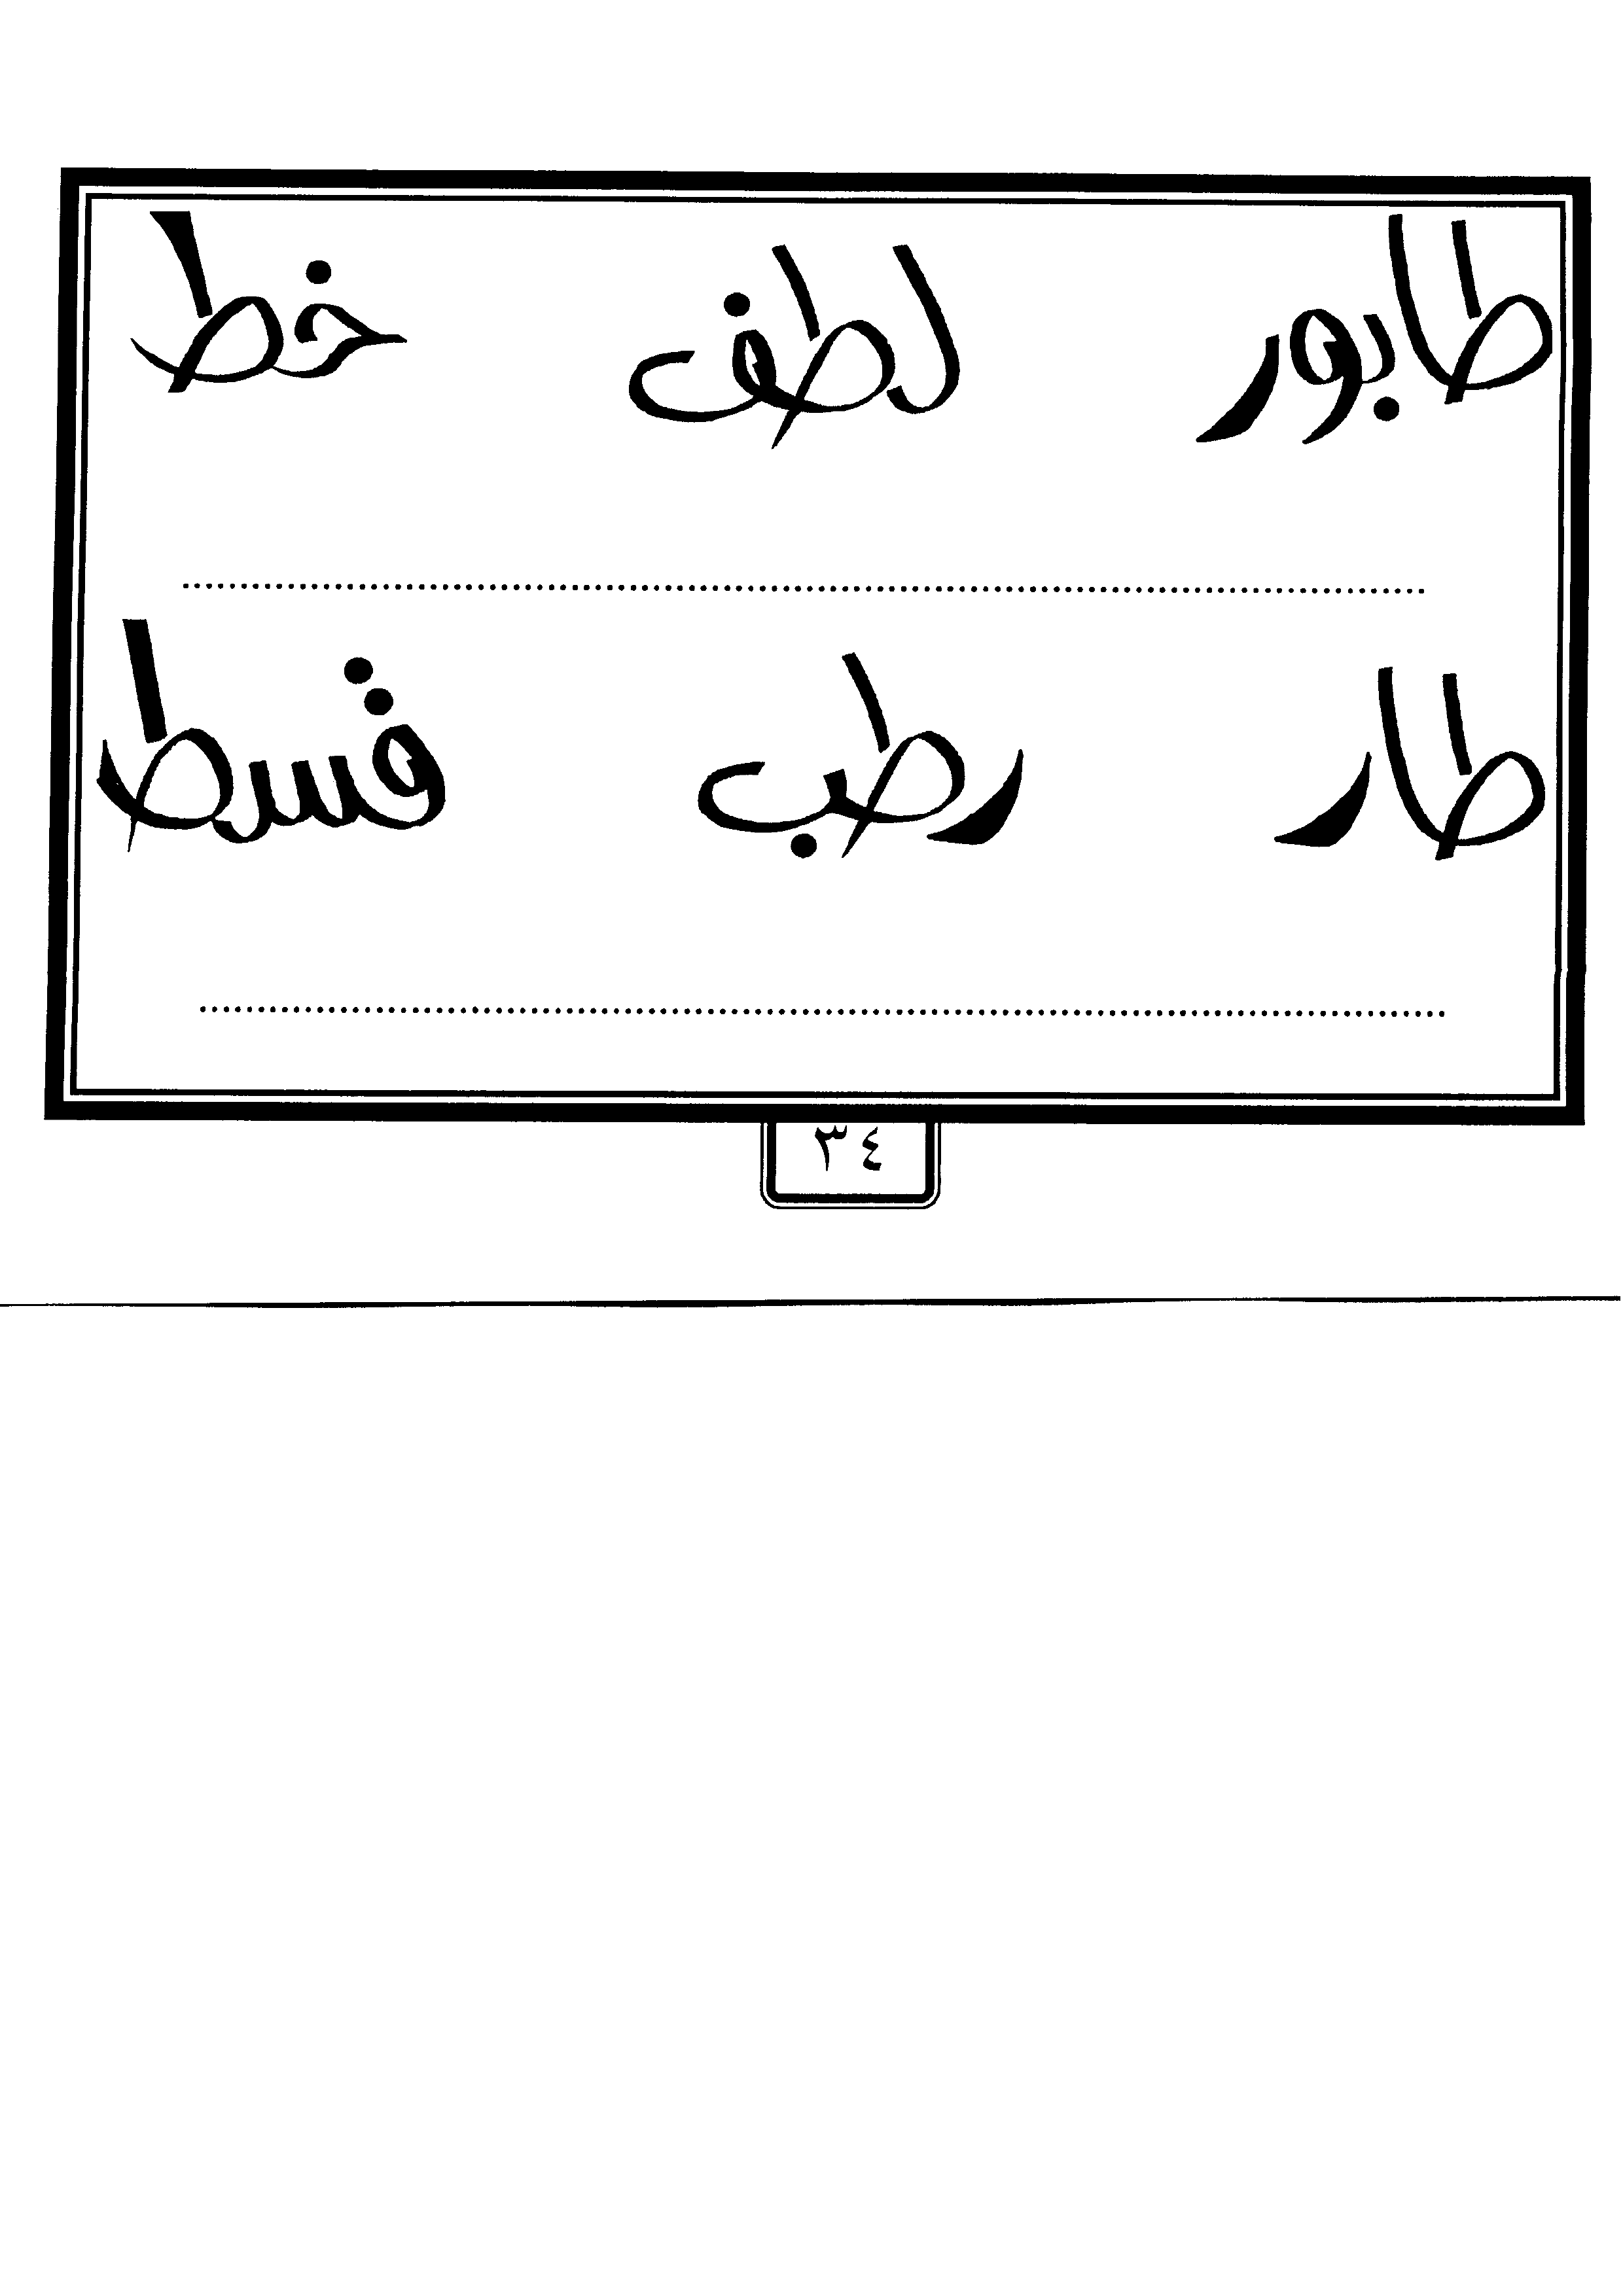 طابور لطف خط
طار رطب قسط
٣٤